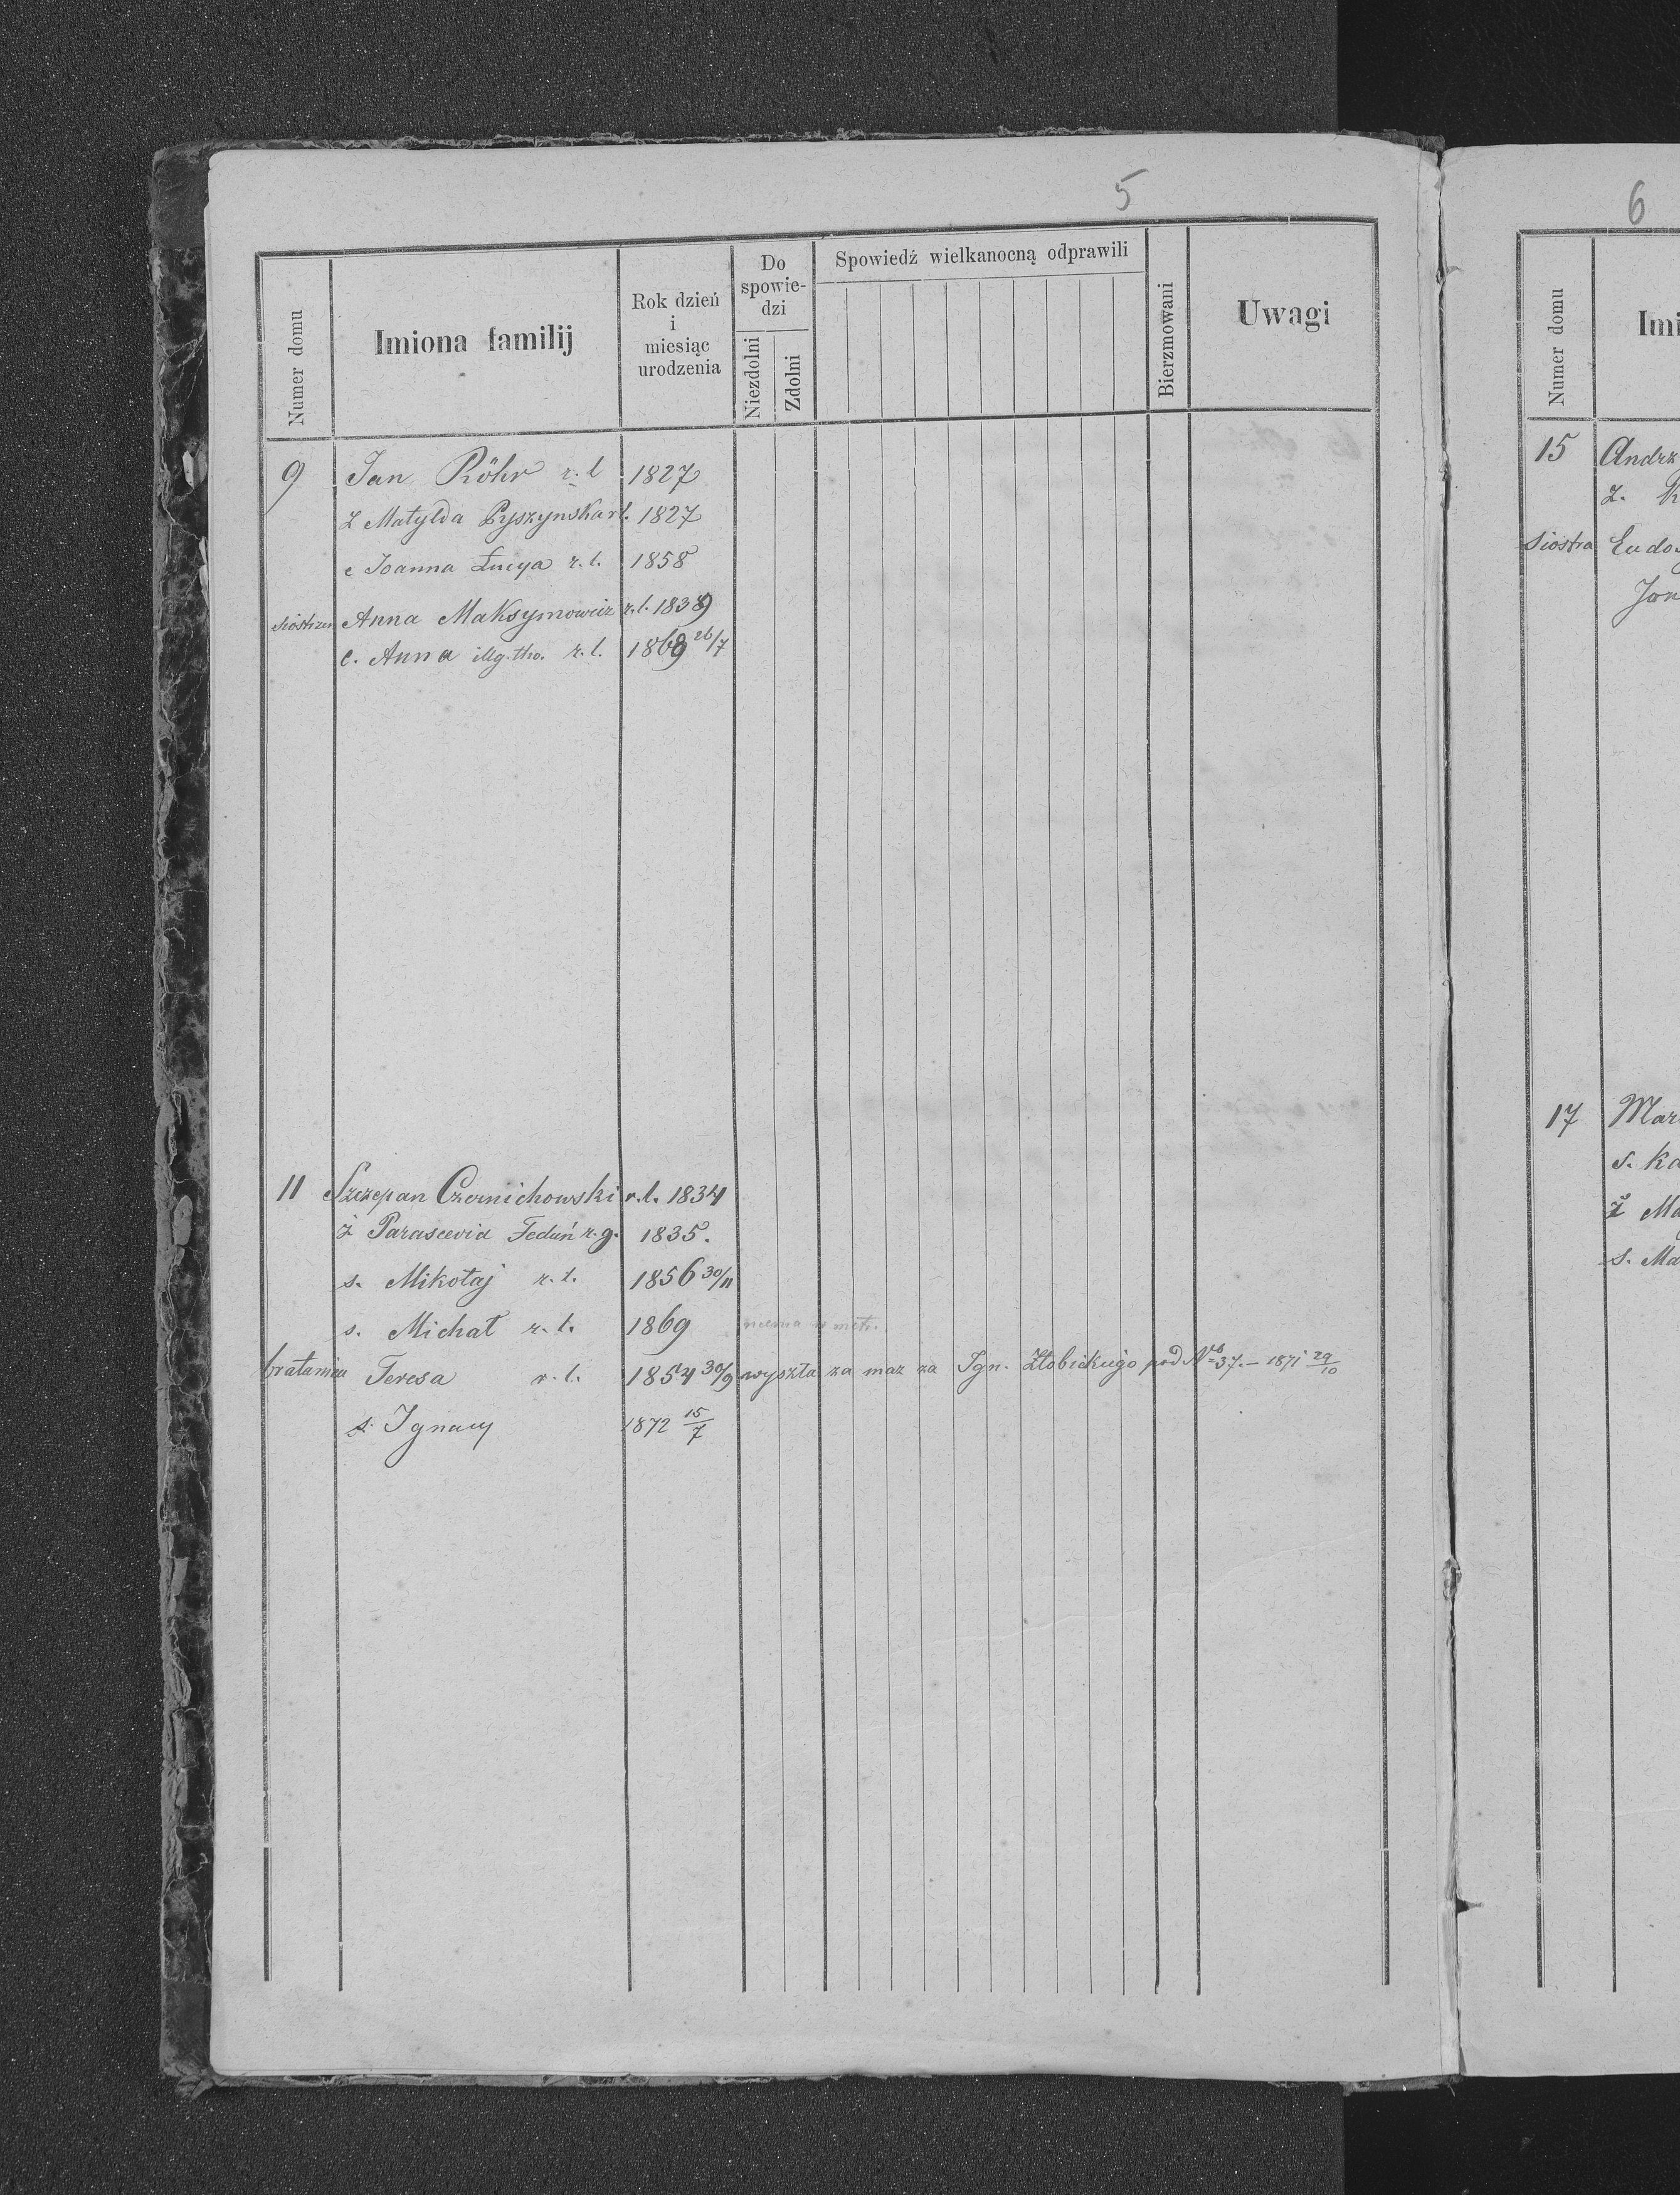 5
Numer domu
Imiona familij
Rok dzień
i
miesiąc
urodzenia
Do
spowie-
dzi
Niezdolni
Zdolni
Spowiedź wielkanocną odprawili
Bierzmowani
Uwagi
9 Jan Röhr r. l 1827
ż Matylda Pyszynska r l. 1827
c Joanna Łucya r. l. 1858
siostrzen Anna Maksymowicz r. l. 1839
c. Anna illg. tho. r. l. 1869 26/7
11 Szczepan Czernichowski r. l. 1834
ż Parascevia Feduń r. g. 1835.
s. Mikołaj r. l. 1856 30/11
s. Michał r. l. 1869 niema w metr.
bratanica Teresa r. l. 1854 30/9 wyszła za maz za Ign. Złobickiego pod Nro 37. – 1871 29/10
s. Ignacy 1872 15/7
6
Numer domu
Imi
15 Andrz
ż.
siostra Eudo
Jon
17 Mar
s. Ka
ż Ma
s. Ma